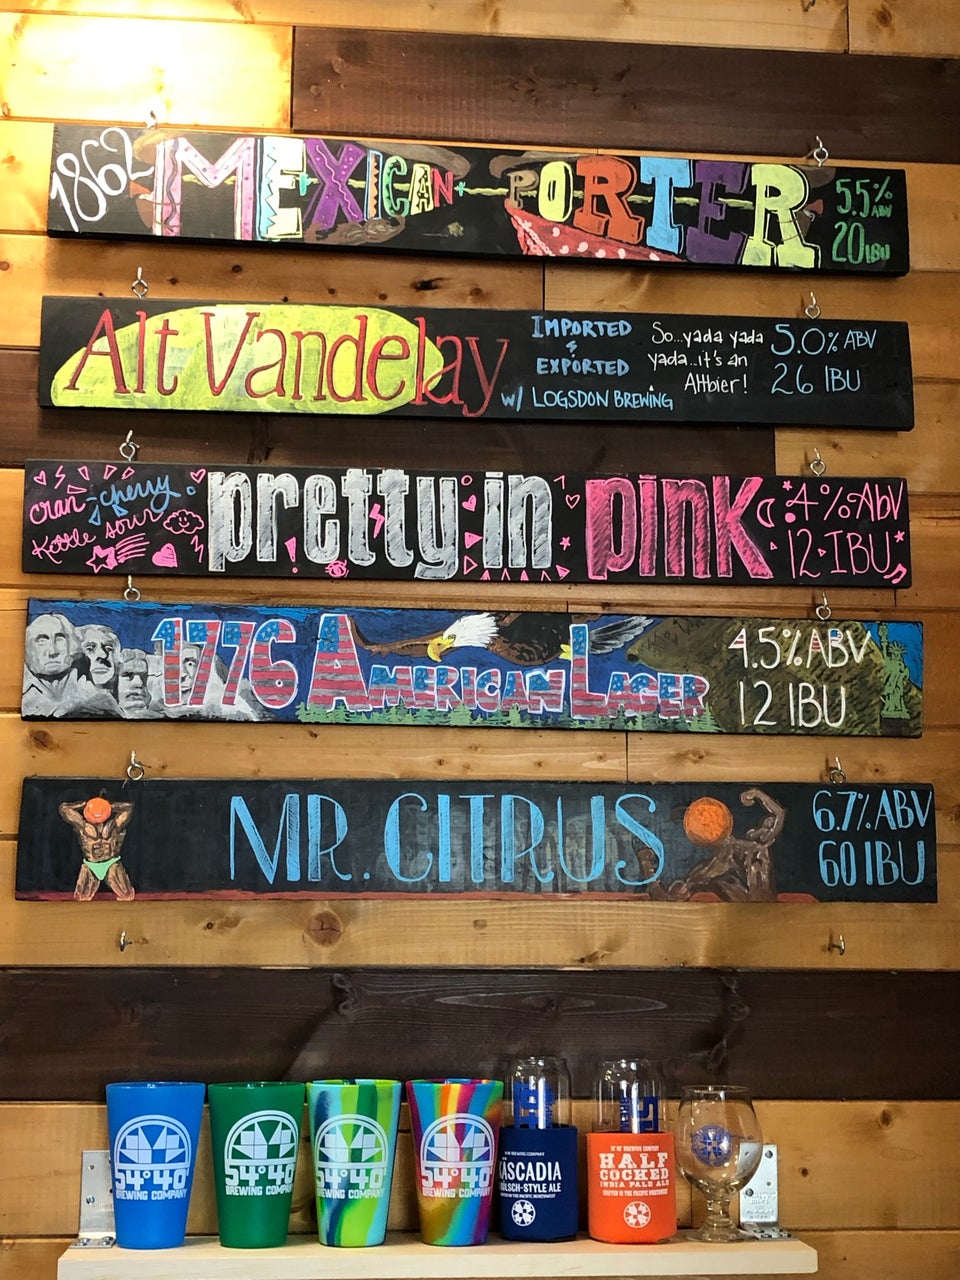 1862 MEXICAN PORTER
5.5% ABV
20 IBU
Alt Vandelay
IMPORTED
&
EXPORTED
w/ LOGSDON BREWING
So...yada yada
yada...it's an
Altbier!
5.0% ABV
26 IBU
cran-cherry
Kettle sour
pretty in pink
4% ABV
12 IBU
1776 AMERICAN LAGER
4.5% ABV
12 IBU
MR. CITRUS
6.7% ABV
60 IBU
54°40'
BREWING COMPANY
54°40'
BREWING COMPANY
54°40'
BREWING COMPANY
54°40'
BREWING COMPANY
KASCADIA
KÖLSCH-STYLE ALE
54°40' BREWING COMPANY
HALF
COCKED
INDIA PALE ALE
CRAFTED IN THE PACIFIC NORTHWEST